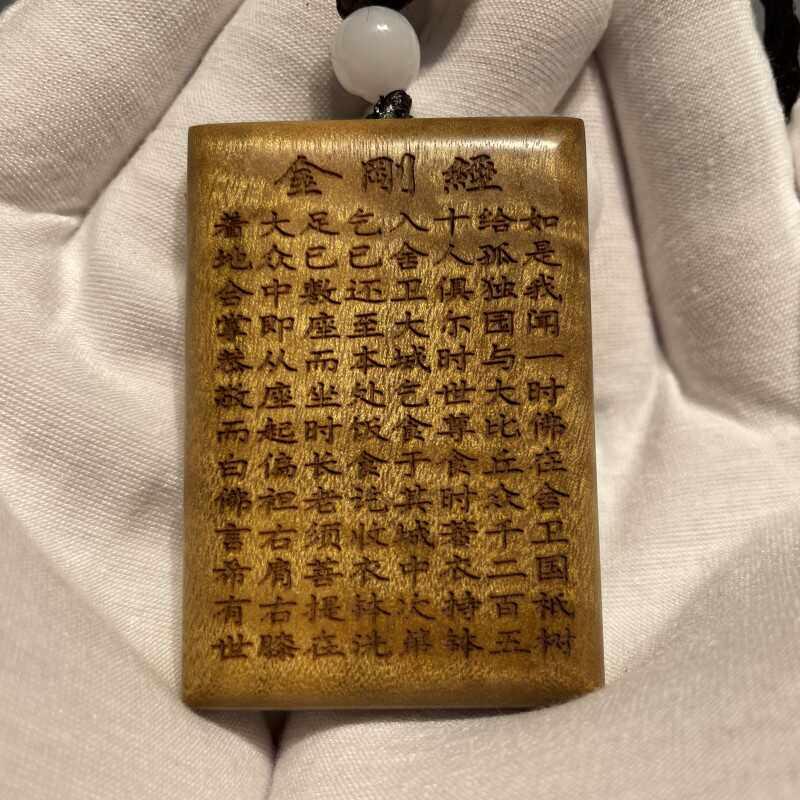 金剛經
如是我闻一时佛在舍卫国祇树
给孤独园与大比丘众千二百五
十人俱尔时世尊食时著衣持钵
入舍卫大城乞食于其城中次第
乞已还至本处饭食讫收衣钵洗
足已敷座而坐时长老须菩提在
大众中即从座起偏袒右肩右膝
着地合掌恭敬而白佛言希有世